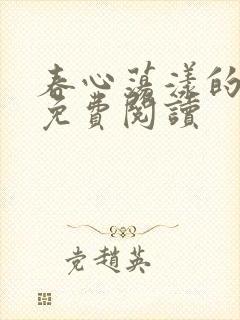 春心荡漾的
免費閱讀
党趙英